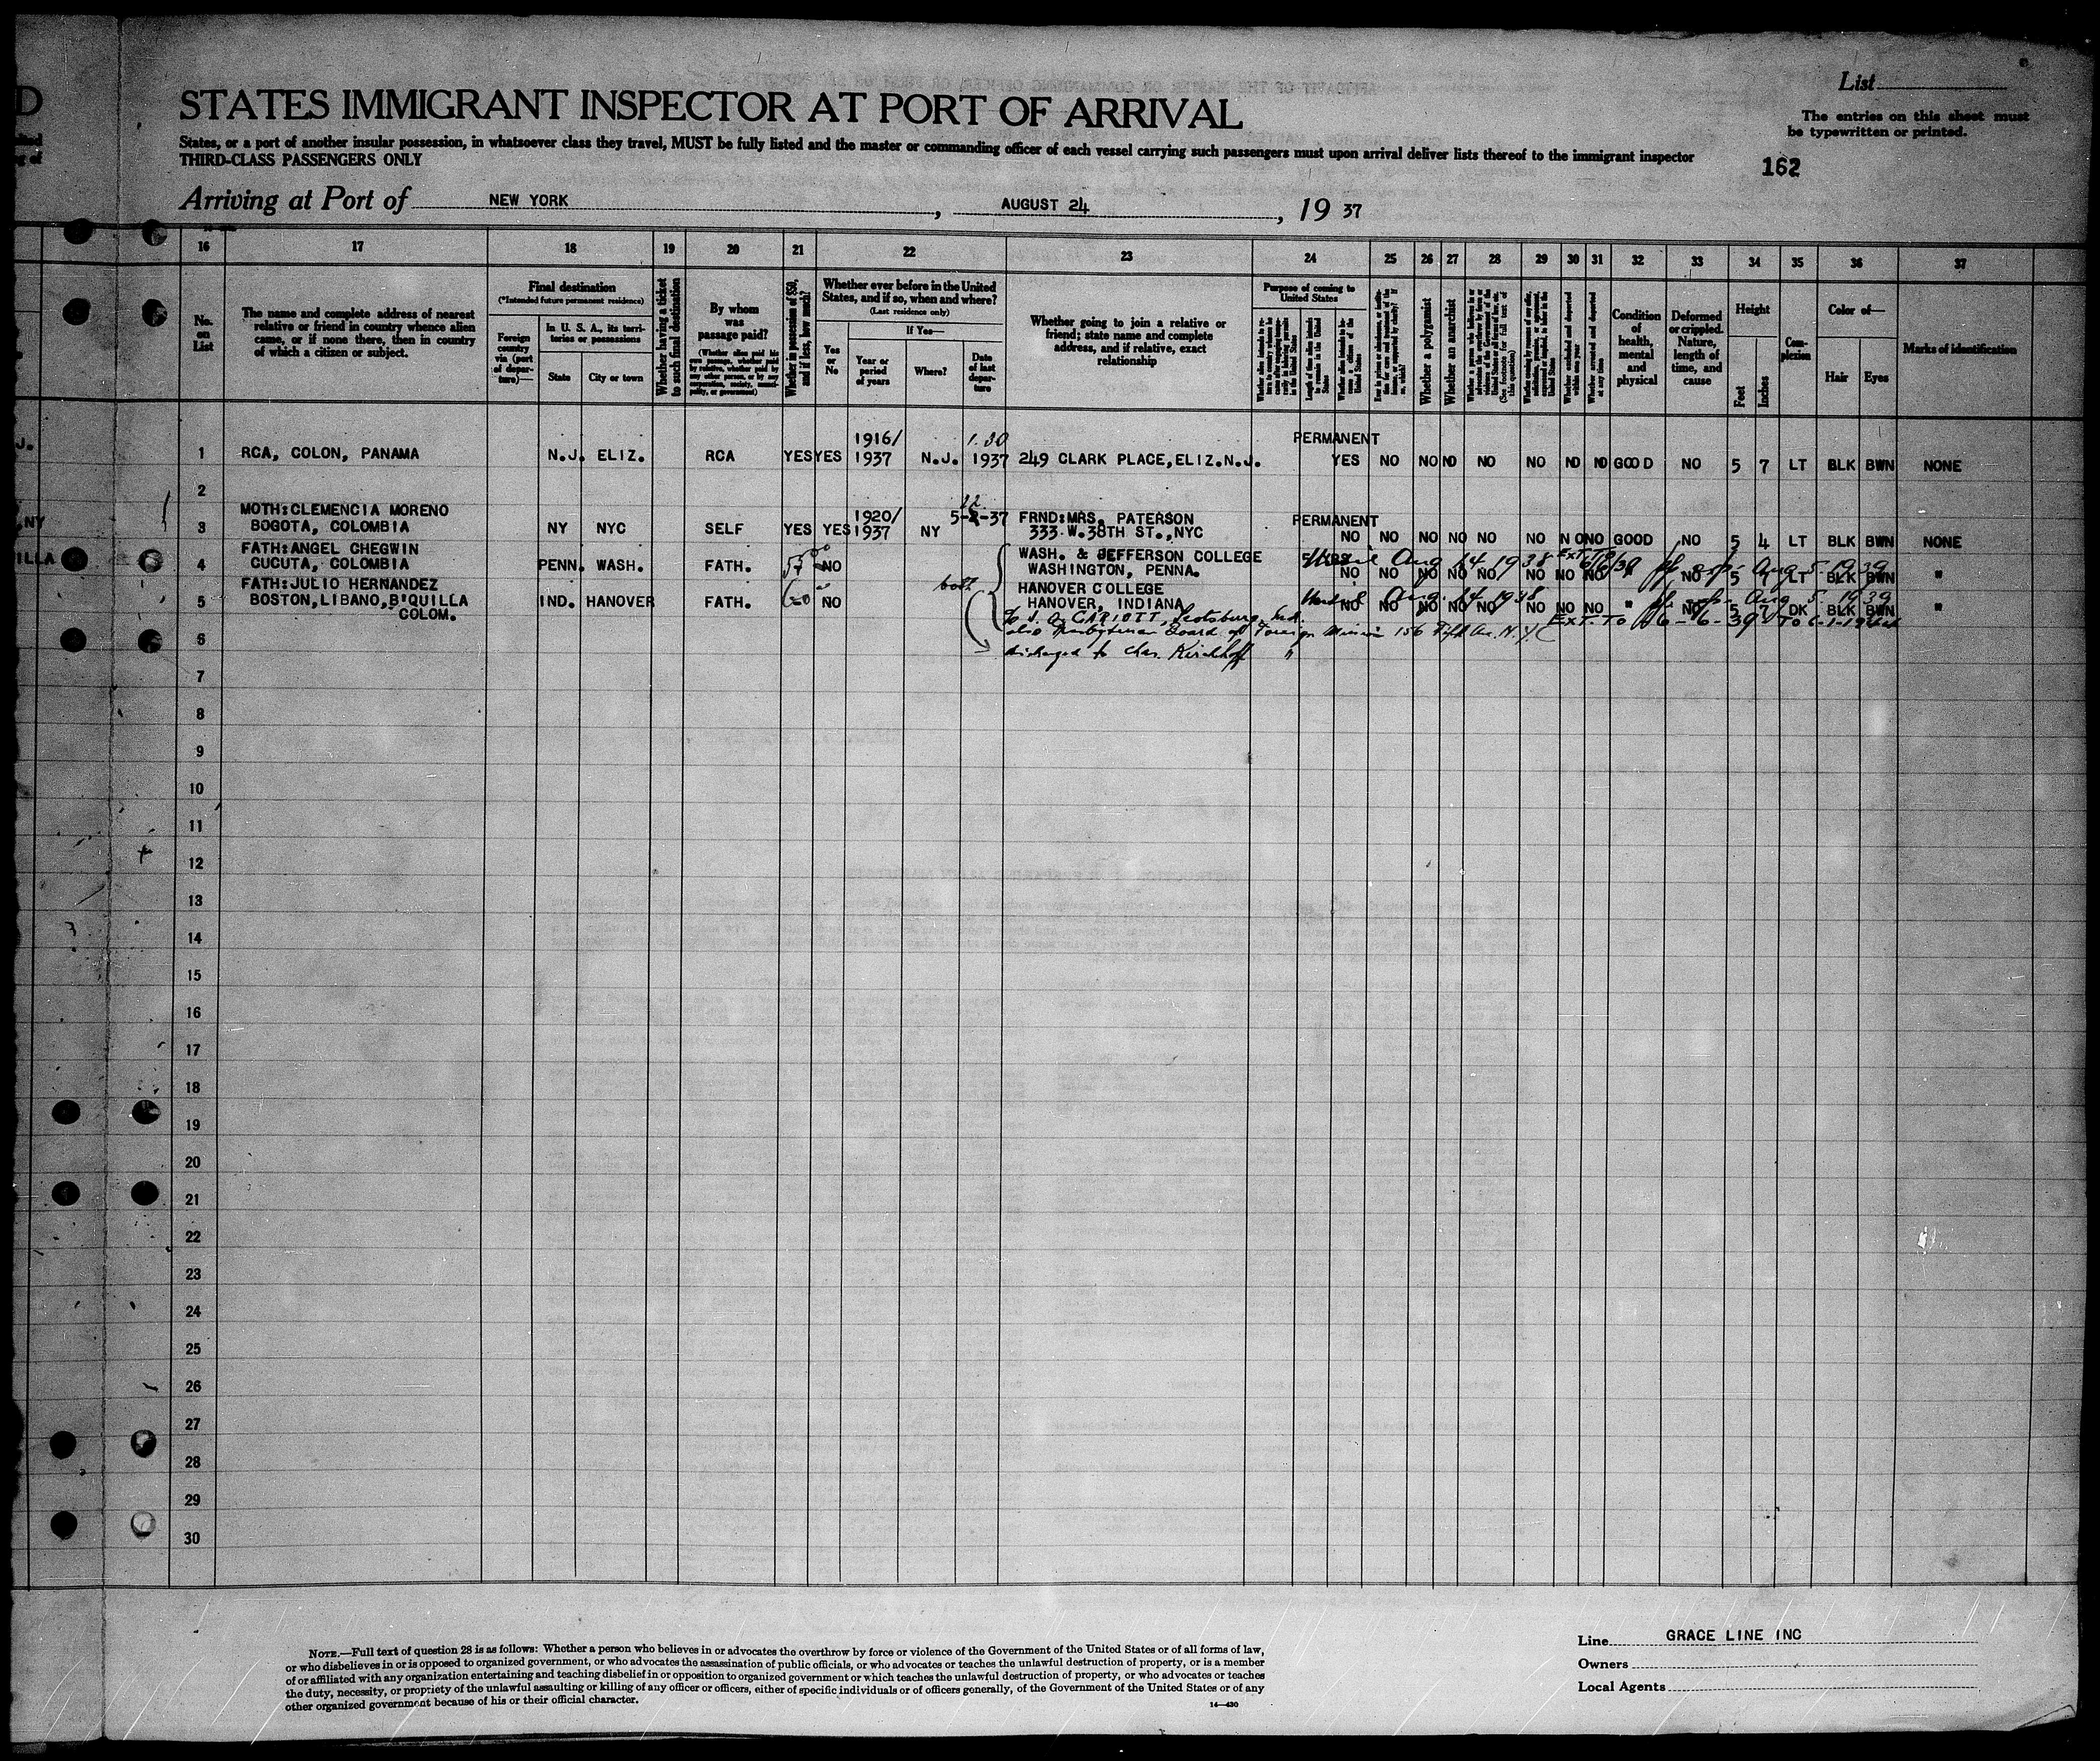 D
STATES IMMIGRANT INSPECTOR AT PORT OF ARRIVAL
List
The entries on this sheet must
be typewritten or printed.
States, or a port of another insular possession, in whatsoever class they travel, MUST be fully listed and the master or commanding officer of each vessel carrying such passengers must upon arrival deliver lists thereof to the immigrant inspector
THIRD-CLASS PASSENGERS ONLY
162
Arriving at Port of NEW YORK, AUGUST 24, 19 37
16 17 18 19 20 21 22 23 24 25 26 27 28 29 30 31 32 33 34 35 36 37
No. on List
The name and complete address of nearest
relative or friend in country whence alien
came, or if none there, then in country
of which a citizen or subject.
Final destination
(*Intended future permanent residence)
Foreign country via (port of departure)—
In U. S. A., its territories or possessions
State
City or town
Whether having a ticket to such final destination
By whom was passage paid?
(Whether alien paid his own passage, whether paid by relative, whether paid by any other person, or by any corporation, society, municipality, or government)
Whether in possession of $50, and if less, how much?
Whether ever before in the United
States, and if so, when and where?
(Last residence only)
Yes or No
If Yes—
Year or period of years
Where?
Date of last departure
Whether going to join a relative or
friend; state name and complete
address, and if relative, exact
relationship
Purpose of coming to
United States
Length of time alien intends to remain in the United States
Whether alien intends to become a citizen of the United States
Whether a polygamist
Whether an anarchist
(See footnote for full text of this question)
Whether arrested and deported at any time
Condition of health, mental and physical
Deformed or crippled. Nature, length of time, and cause
Height
Feet
Inches
Complexion
Color of—
Hair
Eyes
Marks of identification
1916/ 1.30 PERMANENT
1 RCA, COLON, PANAMA N.J. ELIZ. RCA YES YES 1937 N.J. 1937 249 CLARK PLACE, ELIZ.N.J. YES NO NO NO NO NO NO NO GOOD NO 5 7 LT BLK BWN NONE
2
MOTH:CLEMENCIA MORENO 1920/ 5-2-37 FRND:MRS. PATERSON PERMANENT
3 BOGOTA, COLOMBIA NY NYC SELF YES YES 1937 NY 333 W.38TH ST.,NYC NO NO NO NO NO NO NO NO GOOD NO 5 4 LT BLK BWN NONE
FATH:ANGEL CHEGWIN WASH. & JEFFERSON COLLEGE Aug 14 1938 Aug 5 1939
4 CUCUTA, COLOMBIA PENN. WASH. FATH. NO WASHINGTON, PENNA. NO NO NO NO NO NO NO NO NO 5 LT BLK BWN "
FATH:JULIO HERNANDEZ both HANOVER COLLEGE Aug. 14 1938 Aug 5 1939
5 BOSTON,LIBANO,B'QUILLA IND. HANOVER FATH. 60 NO HANOVER, INDIANA NO NO NO NO NO NO NO NO " NO 5 7 DK BLK BWN "
COLOM.
EXT. TO 6-6-39
also Presbyterian Board of Foreign Mission 156 Fifth Av. N.Y.C
6 discharged to Chas. Kirchhoff "
7
8
9
10
11
12
13
14
15
16
17
18
19
20
21
22
23
24
25
26
27
28
29
30
NOTE.—Full text of question 28 is as follows: Whether a person who believes in or advocates the overthrow by force or violence of the Government of the United States or of all forms of law,
or who disbelieves in or is opposed to organized government, or who advocates the assassination of public officials, or who advocates or teaches the unlawful destruction of property, or is a member
of or affiliated with any organization entertaining and teaching disbelief in or opposition to organized government or which teaches the unlawful destruction of property, or who advocates or teaches
the duty, necessity, or propriety of the unlawful assaulting or killing of any officer or officers, either of specific individuals or of officers generally, of the Government of the United States or of any
other organized government because of his or their official character.
14—430
Line GRACE LINE INC
Owners
Local Agents